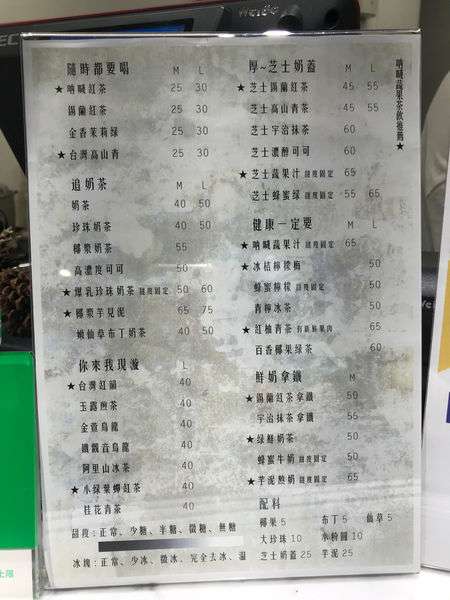 WeiBo
隨時都要喝 M L
★吶喊紅茶 25 30
錫蘭紅茶
金香茉莉綠 25 30
★台灣高山青 25 30
追奶茶 M L
奶茶 40 50
珍珠奶茶 40 50
椰漿奶茶 55
高濃度可可 50
★爆乳珍珠奶茶 甜度固定 50 60
★椰漿芋見泥 65 75
嫩仙草布丁奶茶 40 50
你來我現漩 L
★台灣紅韻 40
玉露煎茶 40
金萱烏龍 40
鐵觀音烏龍 40
阿里山冰茶 40
★小綠葉蟬紅茶 40
桂花青茶 40
甜度:正常、少糖、半糖、微糖、無糖
冰塊:正常、少冰、微冰、完全去冰、溫
厚~芝士奶蓋 M L
★芝士錫蘭紅茶 45 55
芝士高山青茶 45 55
芝士宇治抹茶 60
芝士濃醇可可 60
★芝士蔬果汁 甜度固定 65
芝士蜂蜜綠 甜度固定 55 65
健康一定要 M L
★吶喊蔬果汁 甜度固定 65
★冰桔檸檬梅 50
蜂蜜檸檬 甜度固定 50
青檸冰茶 50
★紅柚青茶 有新鮮果肉 65
百香椰果綠茶 60
鮮奶拿鐵 M L
★錫蘭紅茶拿鐵 50
宇治抹茶拿鐵 55
★綠鮮奶茶 50
蜂蜜牛奶 甜度固定 50
★芋泥熬奶 甜度固定 65
配料
椰果5 布丁5 仙草5
大珍珠10 水粉圓10
芝士奶蓋25 芋泥25
吶喊蔬果茶飲推薦★